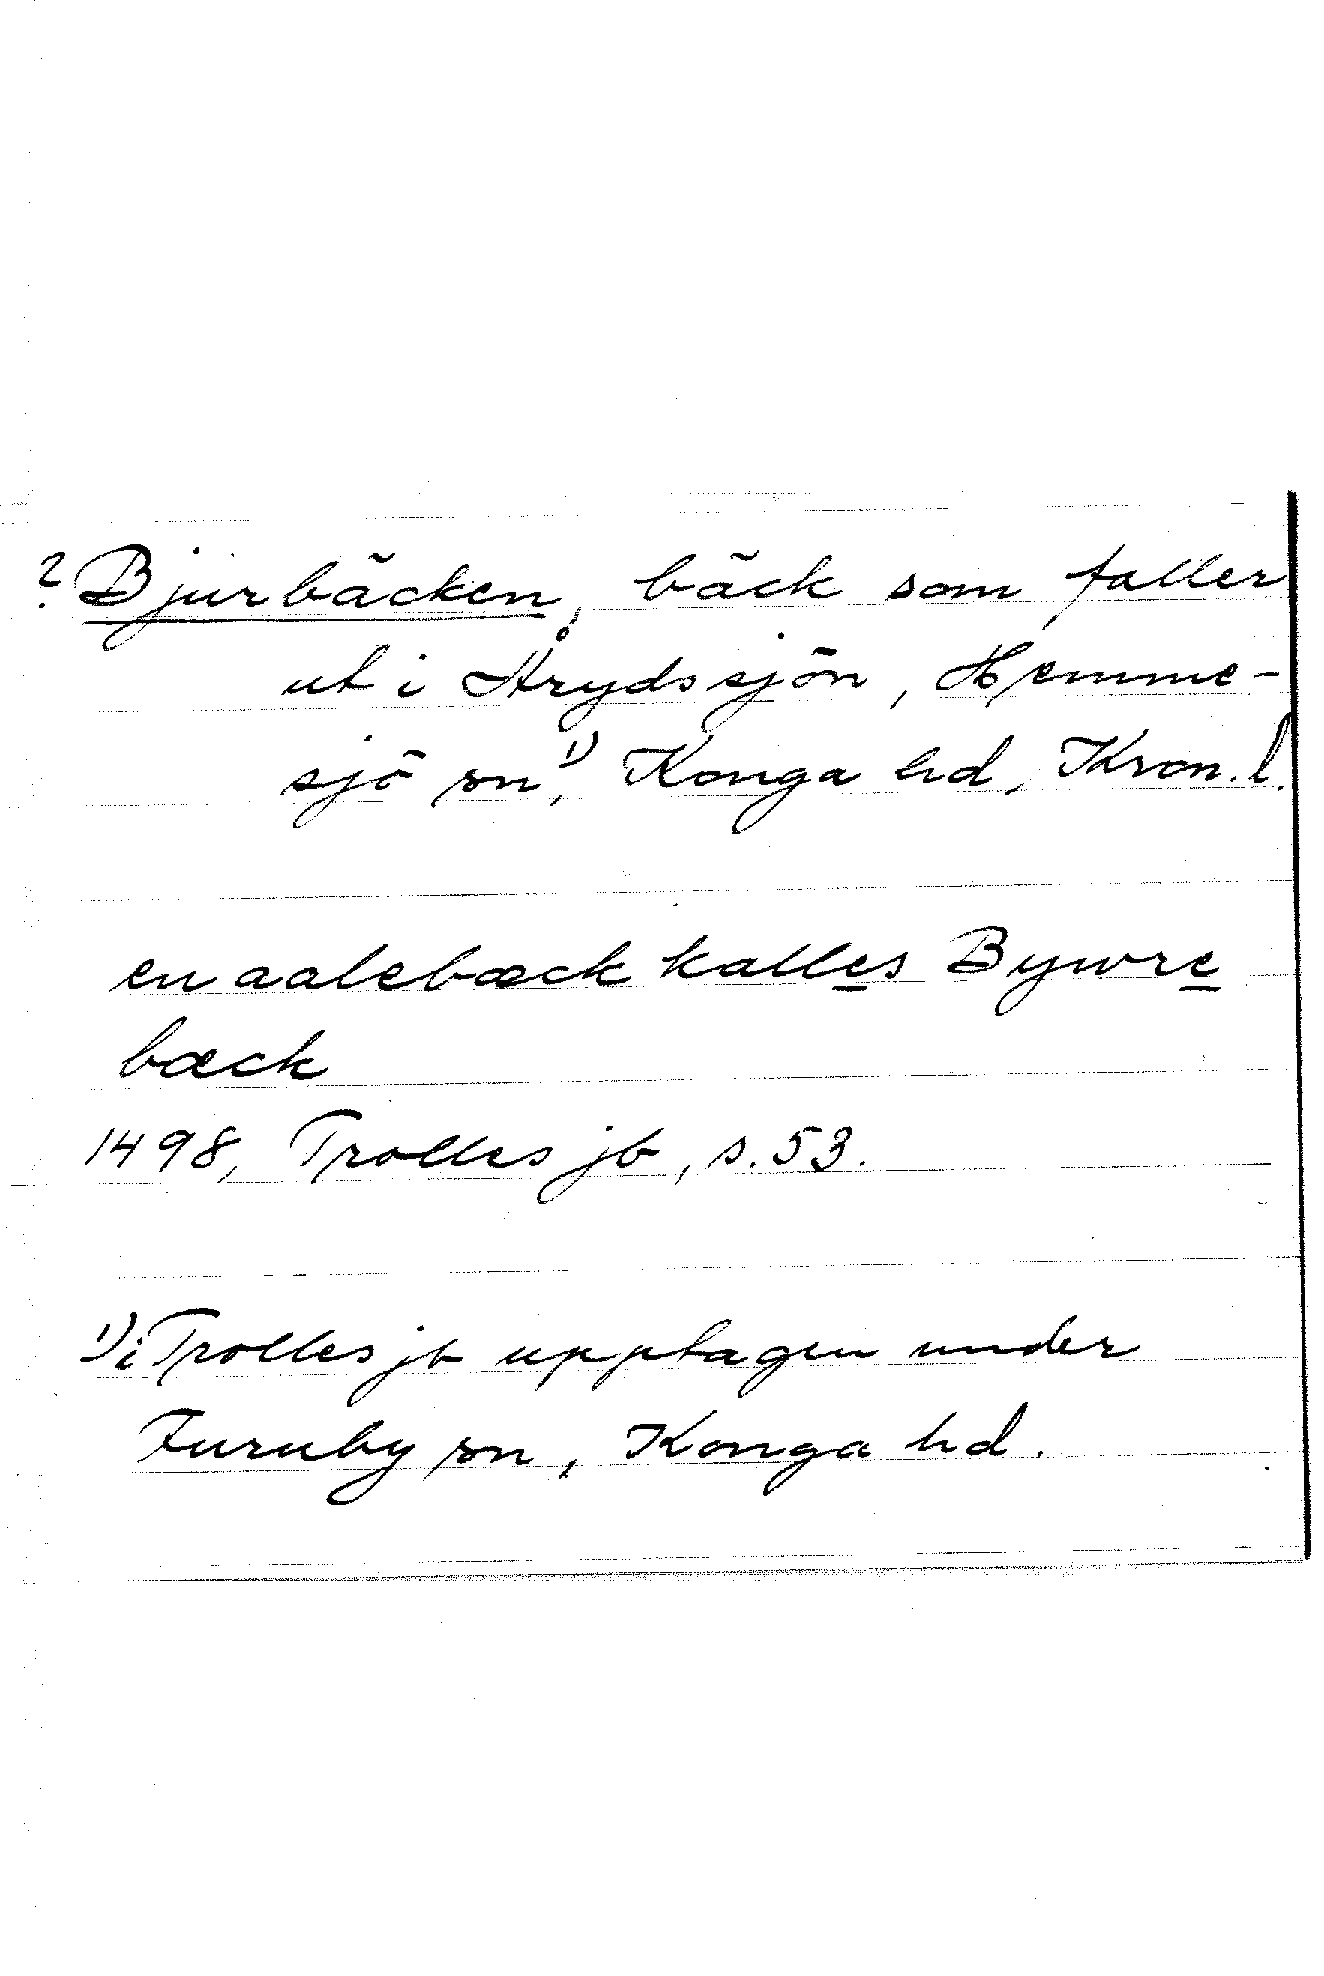 ? Bjurbäcken, bäck som faller
ut i Årydssjön, Hemme-
sjö sn,¹⁾ Konga hd, Kron. l.
en aalebæck kalles Bywre
bæck
1498, Trolles jb, s. 53.
¹⁾ i Trolles jb upptagen under
Furuby sn, Konga hd.